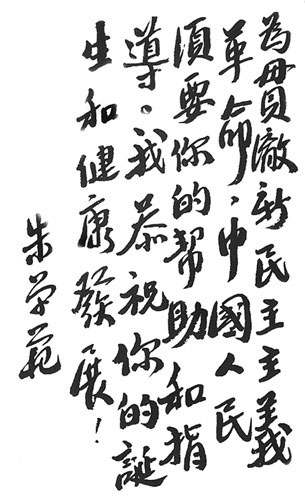 为毌貫澈新民主主義
革命，中國人民
須要你的幫助和指
導。我恭祝你的誕
生和健康發展！
朱学範